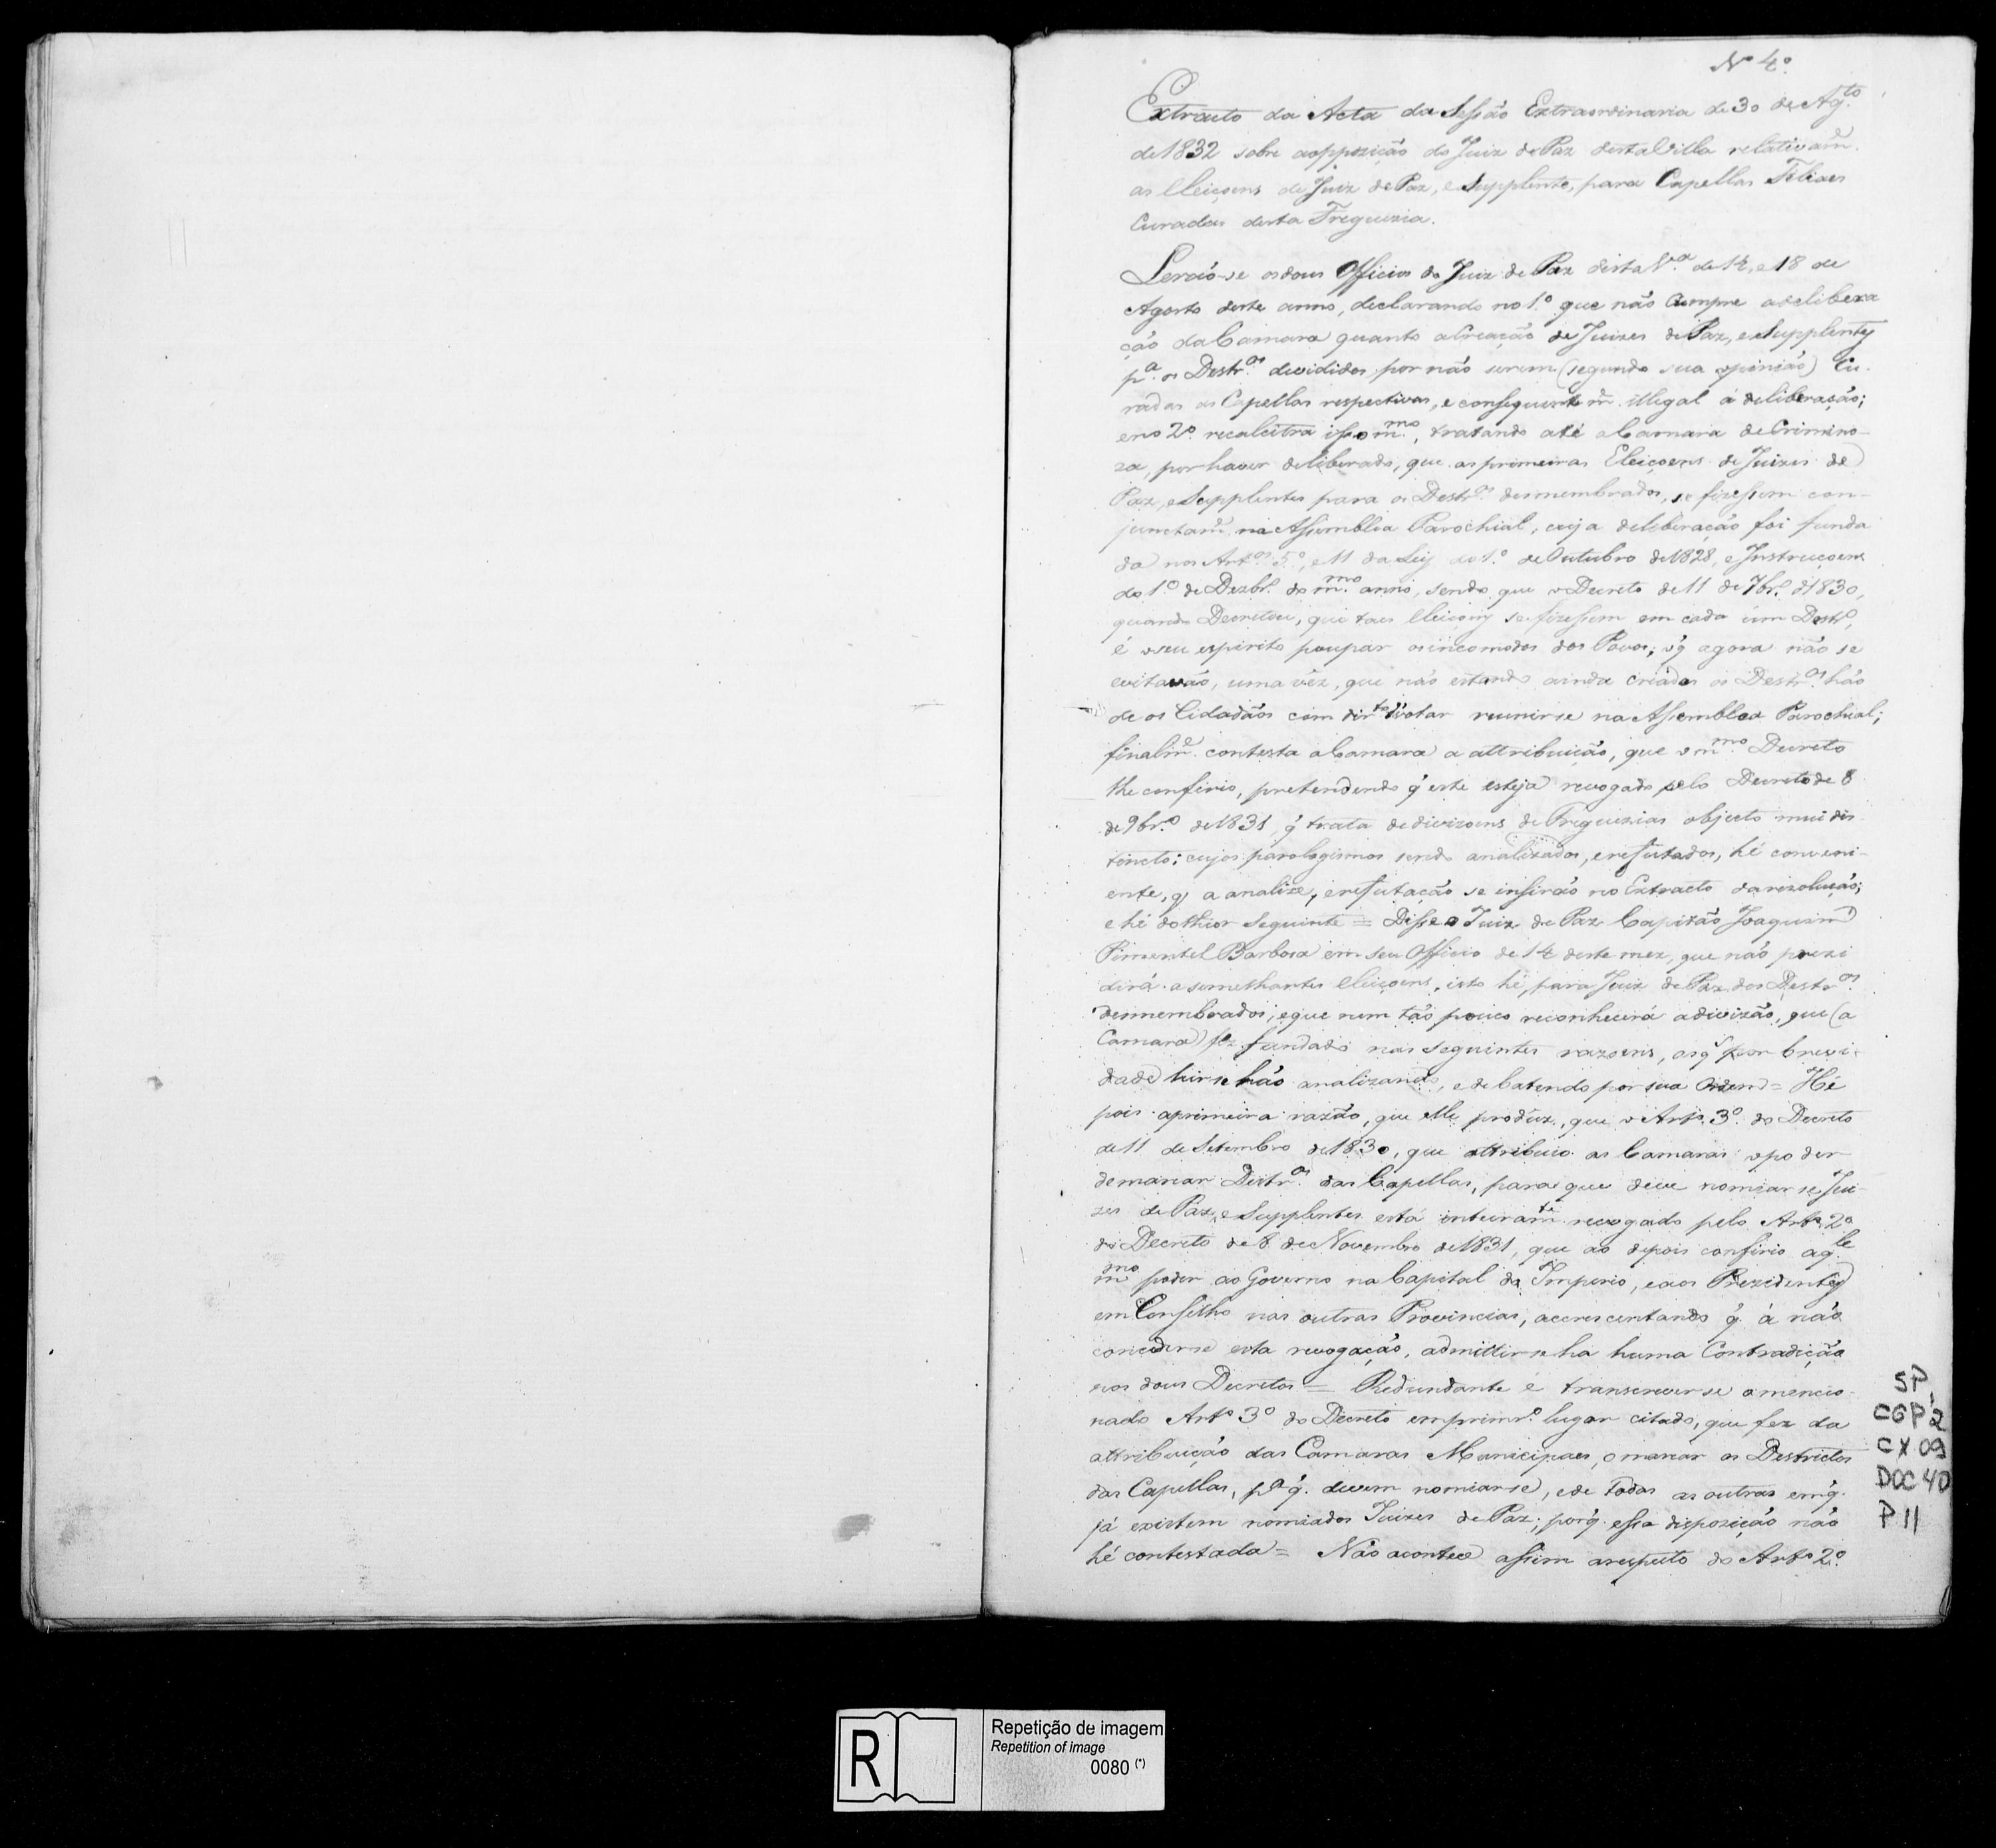 Nº 4º
Extracto da Acta da Sessão Extraordinaria de 30 de Ag.to
de 1832 sobre a oppozição do Juiz de Paz desta Villa relativam.e
as Eleiçoens de Juiz de Paz, e Supplente, para Capellas Feliaes
Curadas desta Freguezia.
Lerão-se os dous Officios do Juiz de Paz desta V.a de 14, e 18 de
Agosto deste anno, declarando no 1º que não cumpre a delibera
ção da Camara quanto a Creação de Juizes de Paz, e Supplentes
p.a os Destr.os devididos por não serem (segundo sua opinião) Cu-
radas as Capellas respectivas, e consequentem.e illegal á deliberação;
e no 2º recalcitra isso m.mo, tratando até a Camara de Crimino-
za, por haver deliberado, que as primeiras Eleiçoens de Juizes de
Paz, e Supplentes para os Destr.os desmembrados, se fizessem con-
junctam.e na Assemblea Parochial, cuja deliberação foi funda
da nos Art.os 5º, e 11 da Ley do 1º de Outubro de 1828, e Instrucçoens
do 1º de Dezbr.o do m.mo anno, sendo que o Decreto de 11 de 7br.o d'1830,
quando Decretou, que taes Eleiçoens se fizessem em cada um Destr.o,
é o seu espirito poupar os incomodos dos Povos; o q̃ agora não se
evitavão, uma vez, que não estando ainda criados os Destr.os hão
de os Cidadãos com dir.to a votar reunirse na Assemblea Parochial;
finalm.e contesta a Camara a attribuição, que o m.mo Decreto
lhe conferio, pretendendo q̃ este esteja revogado pelo Decreto de 8
de 9br.o de 1831, q̃ trata de divizoens de Freguezias objecto mui dis
tincto; cujos paralogismos sendo analizados, e refutados, hé conveni-
ente, q̃ a analize, e refutação se insirão no Extracto da rezolução;
e hé do thior Seguinte = Disse o Juiz de Paz Capitão Joaquim
Pimentel Barboza em seu Officio de 14 deste mez, que não prezi
dirá a semelhantes Eleiçoens, isto hé, para Juiz de Paz dos Destr.os
desmembrados, e que num tão pouco reconhecerá a divizão, que (a
Camara) fez fundado nas Seguintes razoens, as q̃ por brevi-
dade hirse hão analizando, e debatendo por sua Ordem = Hé
pois a primeira razão, que elle produz, que o Art.º 3º do Decreto
de 11 de Setembro de 1830, que attribuio as Camaras o poder
demarcar Destr.os das Capellas, para que deve nomiar se Jui-
zes de Paz, e Supplentes está inteiram.te revogado pelo Art.º 2º
do Decreto de 8 de Novembro de 1831, que ao depois conferio aq.le
m.mo poder ao Governo na Capital do Imperio, e aos Prezidentes
em Conselho nas outras Provincias, accrescentando q̃ á não
concederse esta revogação, admittirseha huma Contradição
nos dous Decretos = Redundante é transcrever se o mencio-
nado Art.º 3º do Decreto em primr.º lugar citado, que fez da
attribuição das Camaras Municipaes, o marcar os Destrictos
das Capellas, p.a q̃ devem nomiarse, e de todas as outras em q̃
já existem nomiados Juizes de Paz; porq̃ essa dispozição não
hé contestada = Não acontece assim a respeito do Art.º 2º
SP,
CGP 2
CX 09
DOC 40
P 11
R
Repetição de imagem
Repetition of image
0080 (*)